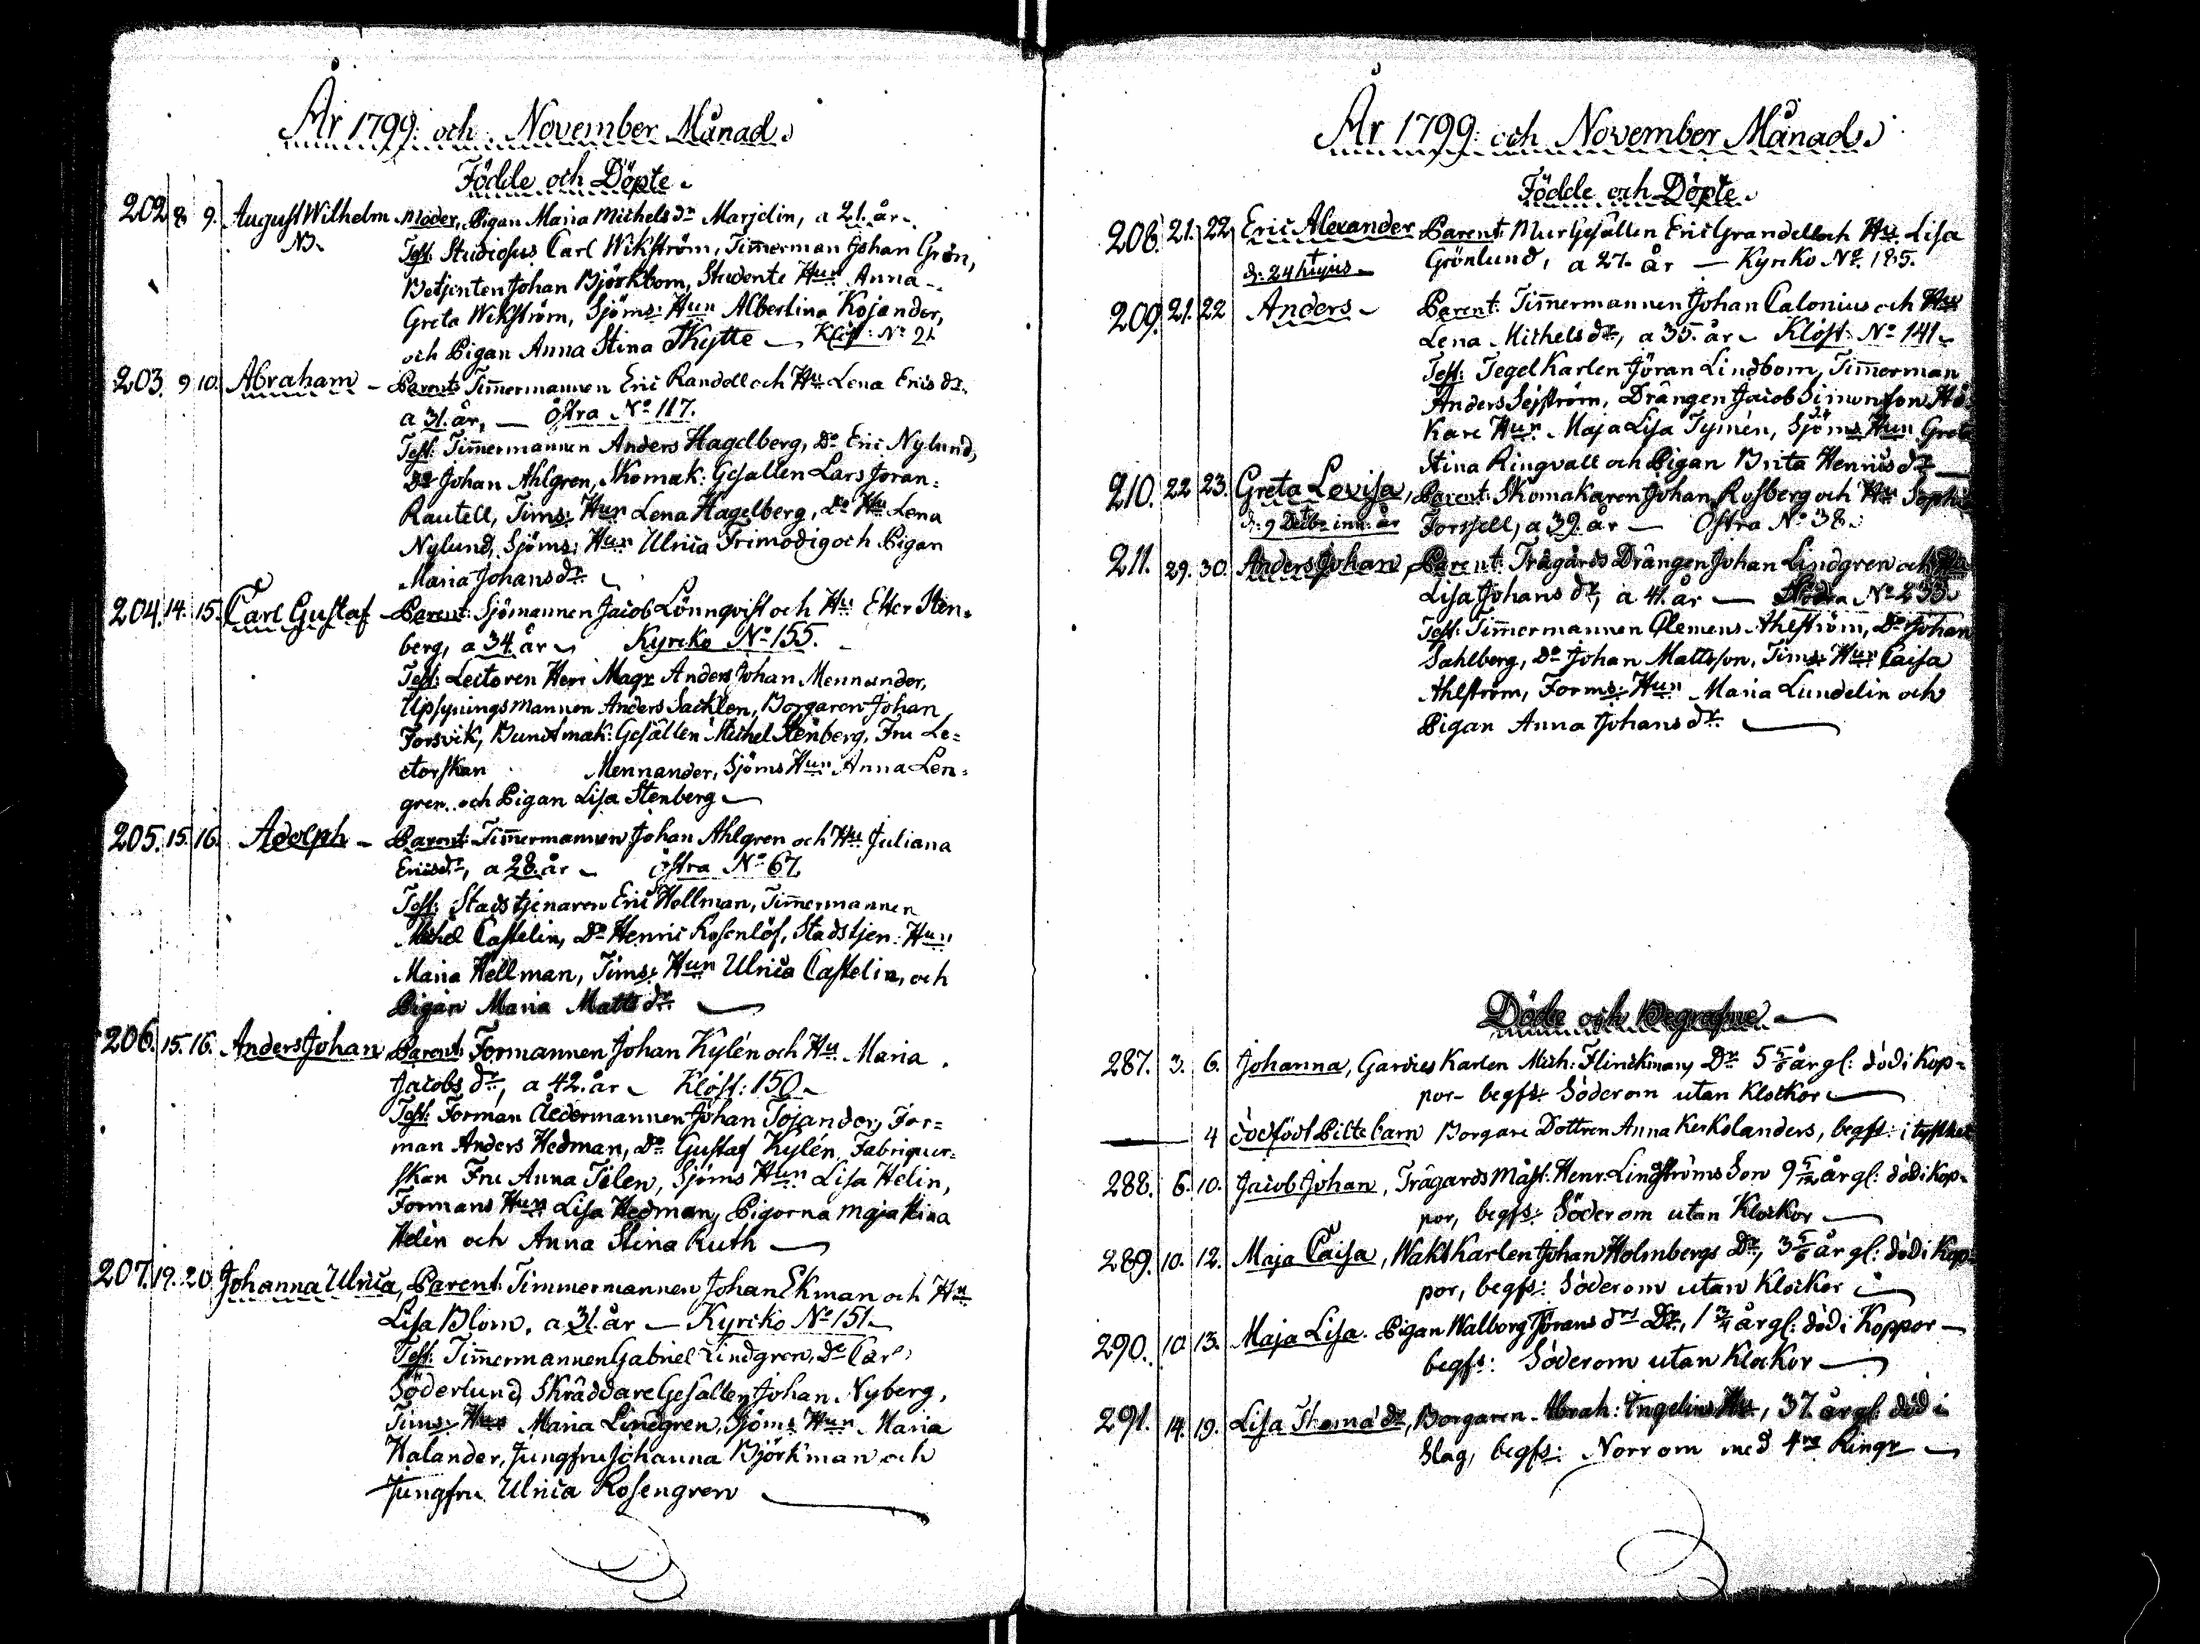 År 1799: och November Månad.
Födde och Döpte.
202 8 9. August Wilhelm Moder, Pigan Maria Michels dr Marjelin, a 21. år
NB. Test: Studiosus Carl Wikström, Timmerman Johan Grön,
Betjenten Johan Björkbom, Studente Hun Anna
Greta Wikström, Sjöms: Hun Albertina Kojander,
och Pigan Anna Stina Skytte — Klöst: No 21
203. 9 10. Abraham - Parent: Timmermannen Eric Randell och Hu Lena Erics dr.
a 31. år, — Östra No 117.
Test: Timmermannen Anders Hagelberg, Do Eric Nylund,
Do Johan Ahlgren, Skomak: Gesällen Lars Joran-
Rautell, Tims: Hun Lena Hagelberg, Do Hu Lena
Nylund, Sjöms: Hun Ulrica Frimodig och Pigan
Maria Johans dr.
204. 14. 15. Carl Gustaf - Parent: Sjömannen Jacob Lönnqvist och Hu: Etter Sten-
berg, a 34. år Kyrcko No 155.
Test: Lectoren Herr Magr Anders Johan Mennander,
Upsyningsmannen Anders Sacklen, Borgaren Johan
Forsvik, Buntmak: Gesällen Michel Stenberg, Fru Le-
ctorskan Mennander, Sjöms Hun Anna Len-
gren. och Pigan Lisa Stenberg
205. 15. 16. Adolph - Parent: Timmermannen Johan Ahlgren och Hu Juliana
Ericsdr, a 28. år Östra No 67.
Test: Stadstjenaren Eric Hellman, Timmermannen
Michel Castelin, Do Henric Rosenlöf, Stadstjen: Hun
Maria Hellman, Tims: Hun Ulrica Castelin, och
Pigan Maria Matts dr.
206. 15. 16. Anders Johan Parent: Formannen Johan Kylén och Hu Maria
Jacobs dr, a 42. år Klöst: 150
Test: Forman Åldermannen Johan Tojander, For-
man Anders Hedman, Do Gustaf Kylén, Fabriquer-
skan Fru Anna Tilen, Sjöms Hun Lisa Helin,
Formans Hun Lisa Hedman, Pigorna Maja Stina
Helin och Anna Stina Ruth
207. 19. 20. Johanna Ulrica, Parent: Timmermannen Johan Ekman och Hu
Lisa Blom, a 31. år — Kyrcko No 151
Test: Timmermannen Gabriel Lindgren, Do Carl
Söderlund, Skräddare Gesällen Johan Nyberg,
Tims: Hun Maria Lindgren, Sjöms Hun Maria
Halander, Jungfru Johanna Björkman och
Jungfru Ulrica Rosengren
År 1799: och November Månad.
Födde och Döpte.
208. 21. 22. Eric Alexander Parent: Mur Gesällen Eric Grandell och Hu. Lisa
d: 24 hujus Grönlund, a 27. år — Kyrcko No 185.
209. 21. 22 Anders Parent: Timmermannen Johan Calonius och Hu
Lena Michels dr, a 35. år Klöst: No 141
Test: Tegel Karlen Jöran Lindbom, Timmerman
Anders Sejström, Drängen Jacob Simonson Hö-
kare Hun Maja Lisa Tymén, Sjöms Hun Greta
Stina Ringvall och Pigan Brita Henrics dr
210. 22 23. Greta Lovisa, Parent: Skomakaren Johan Rosberg och Hu Sophia
d: 9 Decbr inn: år Forssell, a 39. år — Östra No 38.
211. 29. 30. Anders Johan, Parent: Trägårds Drängen Johan Lindgren och Hu
Lisa Johans dr, a 41. år — Södra No 233
Test: Timmermannen Clemens Ahlström, Do Johan
Sahlberg, Do Johan Mattsson, Tims: Hun Caisa
Ahlström, Forms: Hun Maria Lundelin och
Pigan Anna Johans dr.
Döde och Begrafne
287. 3. 6. Johanna, Gardies Karlen Mich: Flinckmans Dr 5 5/6 år gl: död i Kop-
por- begfs: Söderom utan Klockor
4 dödfödt Piltebarn Borgare Dottren Anna Keckslanders, begfs: i tysthet
288. 6. 10. Jacob Johan, Trägårds Mäst: Henr: Lingströms Son 9 5/12 år gl: död i Kop-
por, begfs: Söderom utan Klockor
289. 10. 12. Maja Caisa, Wakt Karlen Johan Holmbergs Dr, 3 5/6 år gl: död i Kop-
por, begfs: Söderom utan Klockor
290. 10. 13. Maja Lisa. Pigan Walborg Jörans drs Dr., 1 3/4 år gl: död i Koppor
begfs: Söderom utan Klockor
291. 14. 19. Lisa Thoma dr, Borgaren Abrah: Engelins Hu., 37. år gl: död i
Slag, begfs: Norrom med 4ra Ringr